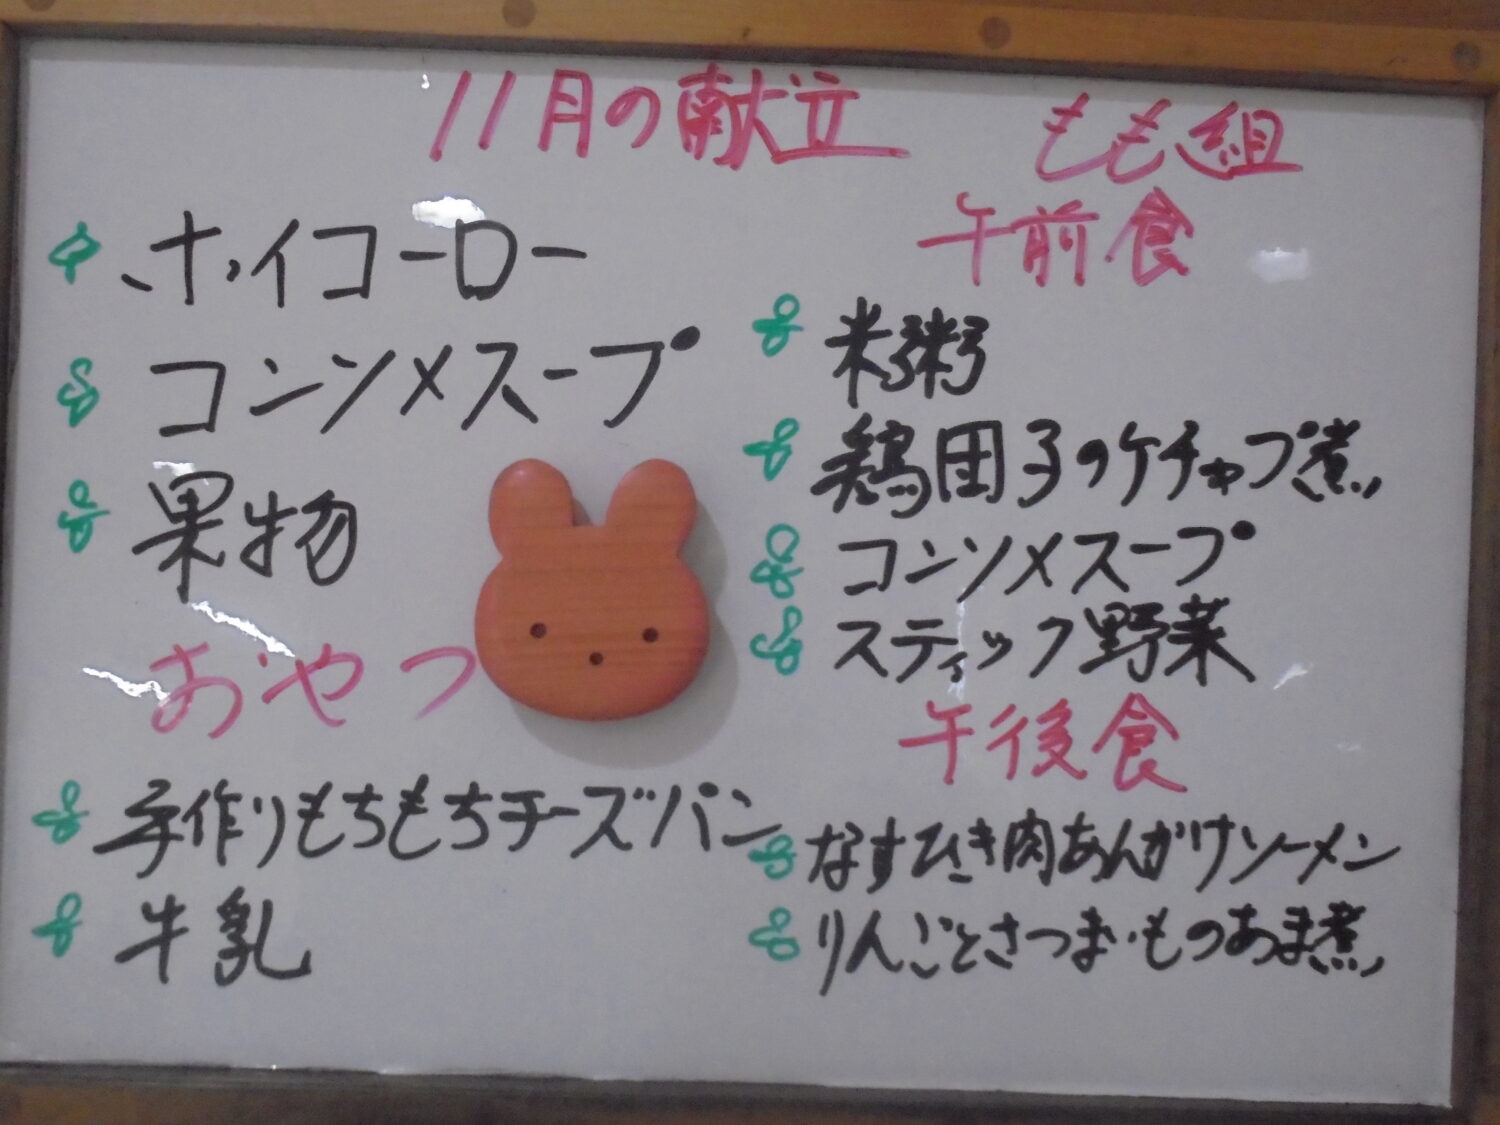 11月の献立
ホイコーロー
コンソメスープ
果物
おやつ
手作りもちもちチーズパン
牛乳
もも組
午前食
米粥
鶏団子のケチャップ煮
コンソメスープ
スティック野菜
午後食
なすひき肉あんかけソーメン
りんごとさつまいものあま煮